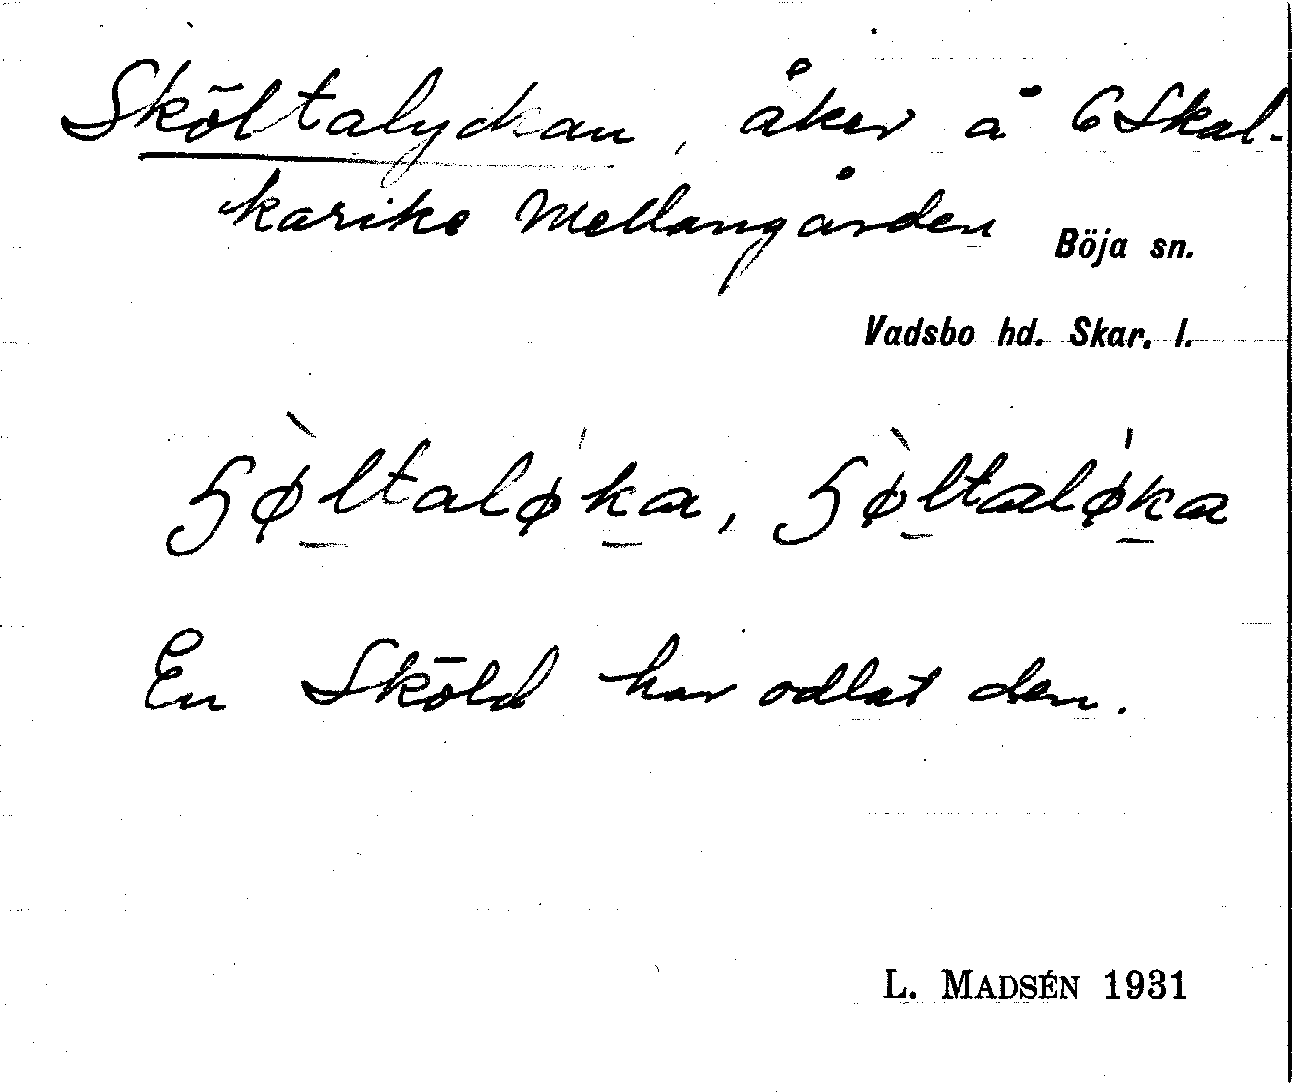 Sköltalyckan, åker å 6 Skal-
karike Mellangården
Böja sn.
Vadsbo hd. Skar. l.
ʃø̀ltalø̍ka, ʃø̀ltalø̍ka
En Sköld har odlat den.
L. MADSÉN 1931